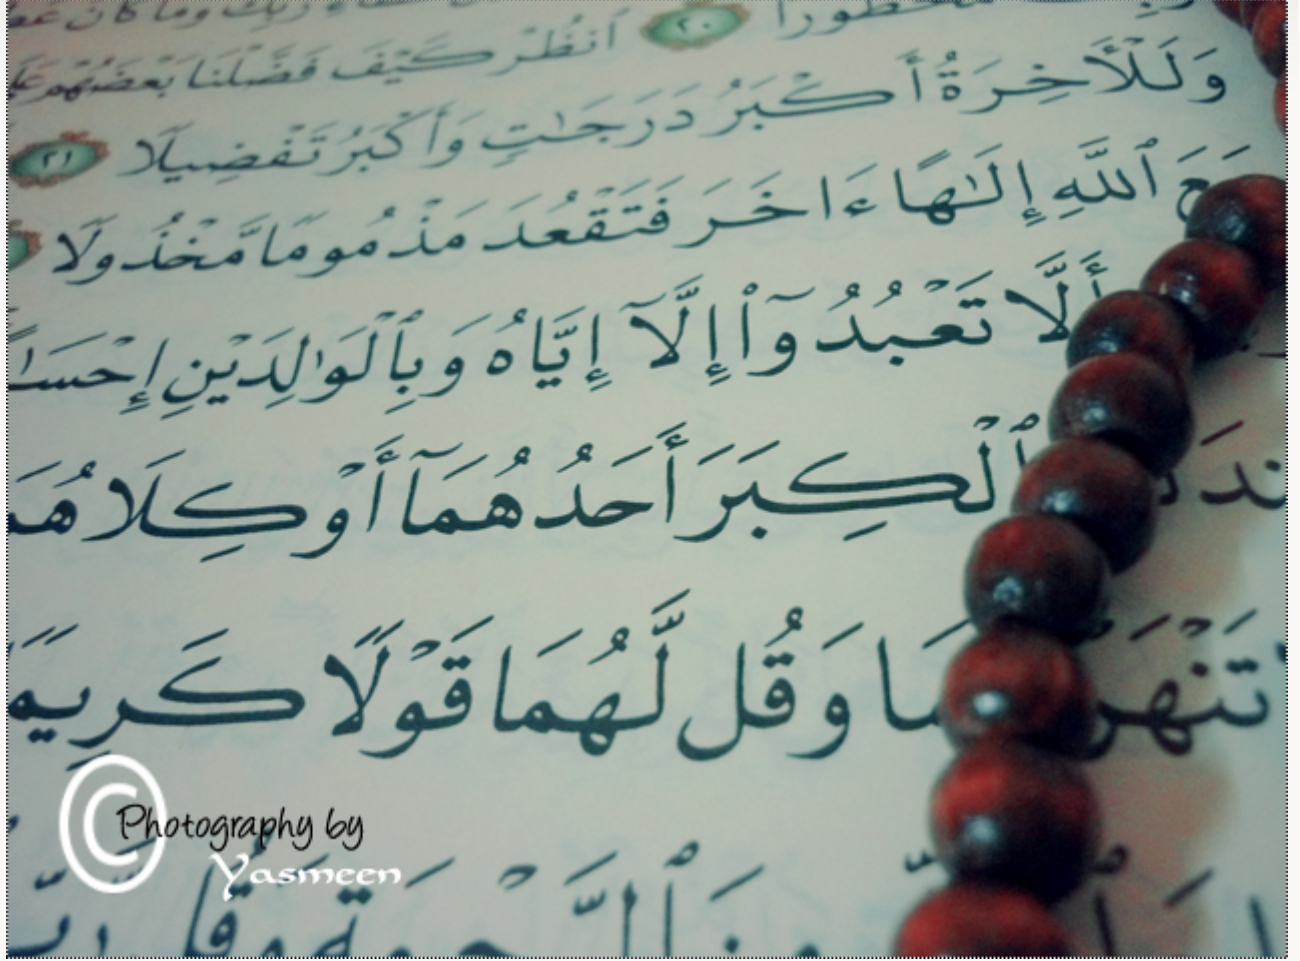 محظورا ٢٠ ٱنظر كيف فضلنا بعضهم
وَلَلْأَخِرَةُ أَكْبَرُ دَرَجَٰتٍ وَأَكْبَرُ تَفْضِيلًا ٢١
ٱللَّهِ إِلَٰهًا ءَاخَرَ فَتَقْعُدَ مَذْمُومًا مَّخْذُولًا
أَلَّا تَعْبُدُوٓا۟ إِلَّآ إِيَّاهُ وَبِٱلْوَٰلِدَيْنِ
ٱلْكِبَرَ أَحَدُهُمَآ أَوْ كِلَاهُمَ
وَقُل لَّهُمَا قَوْلًا كَرِيمً
© Photography by
Yasmeen